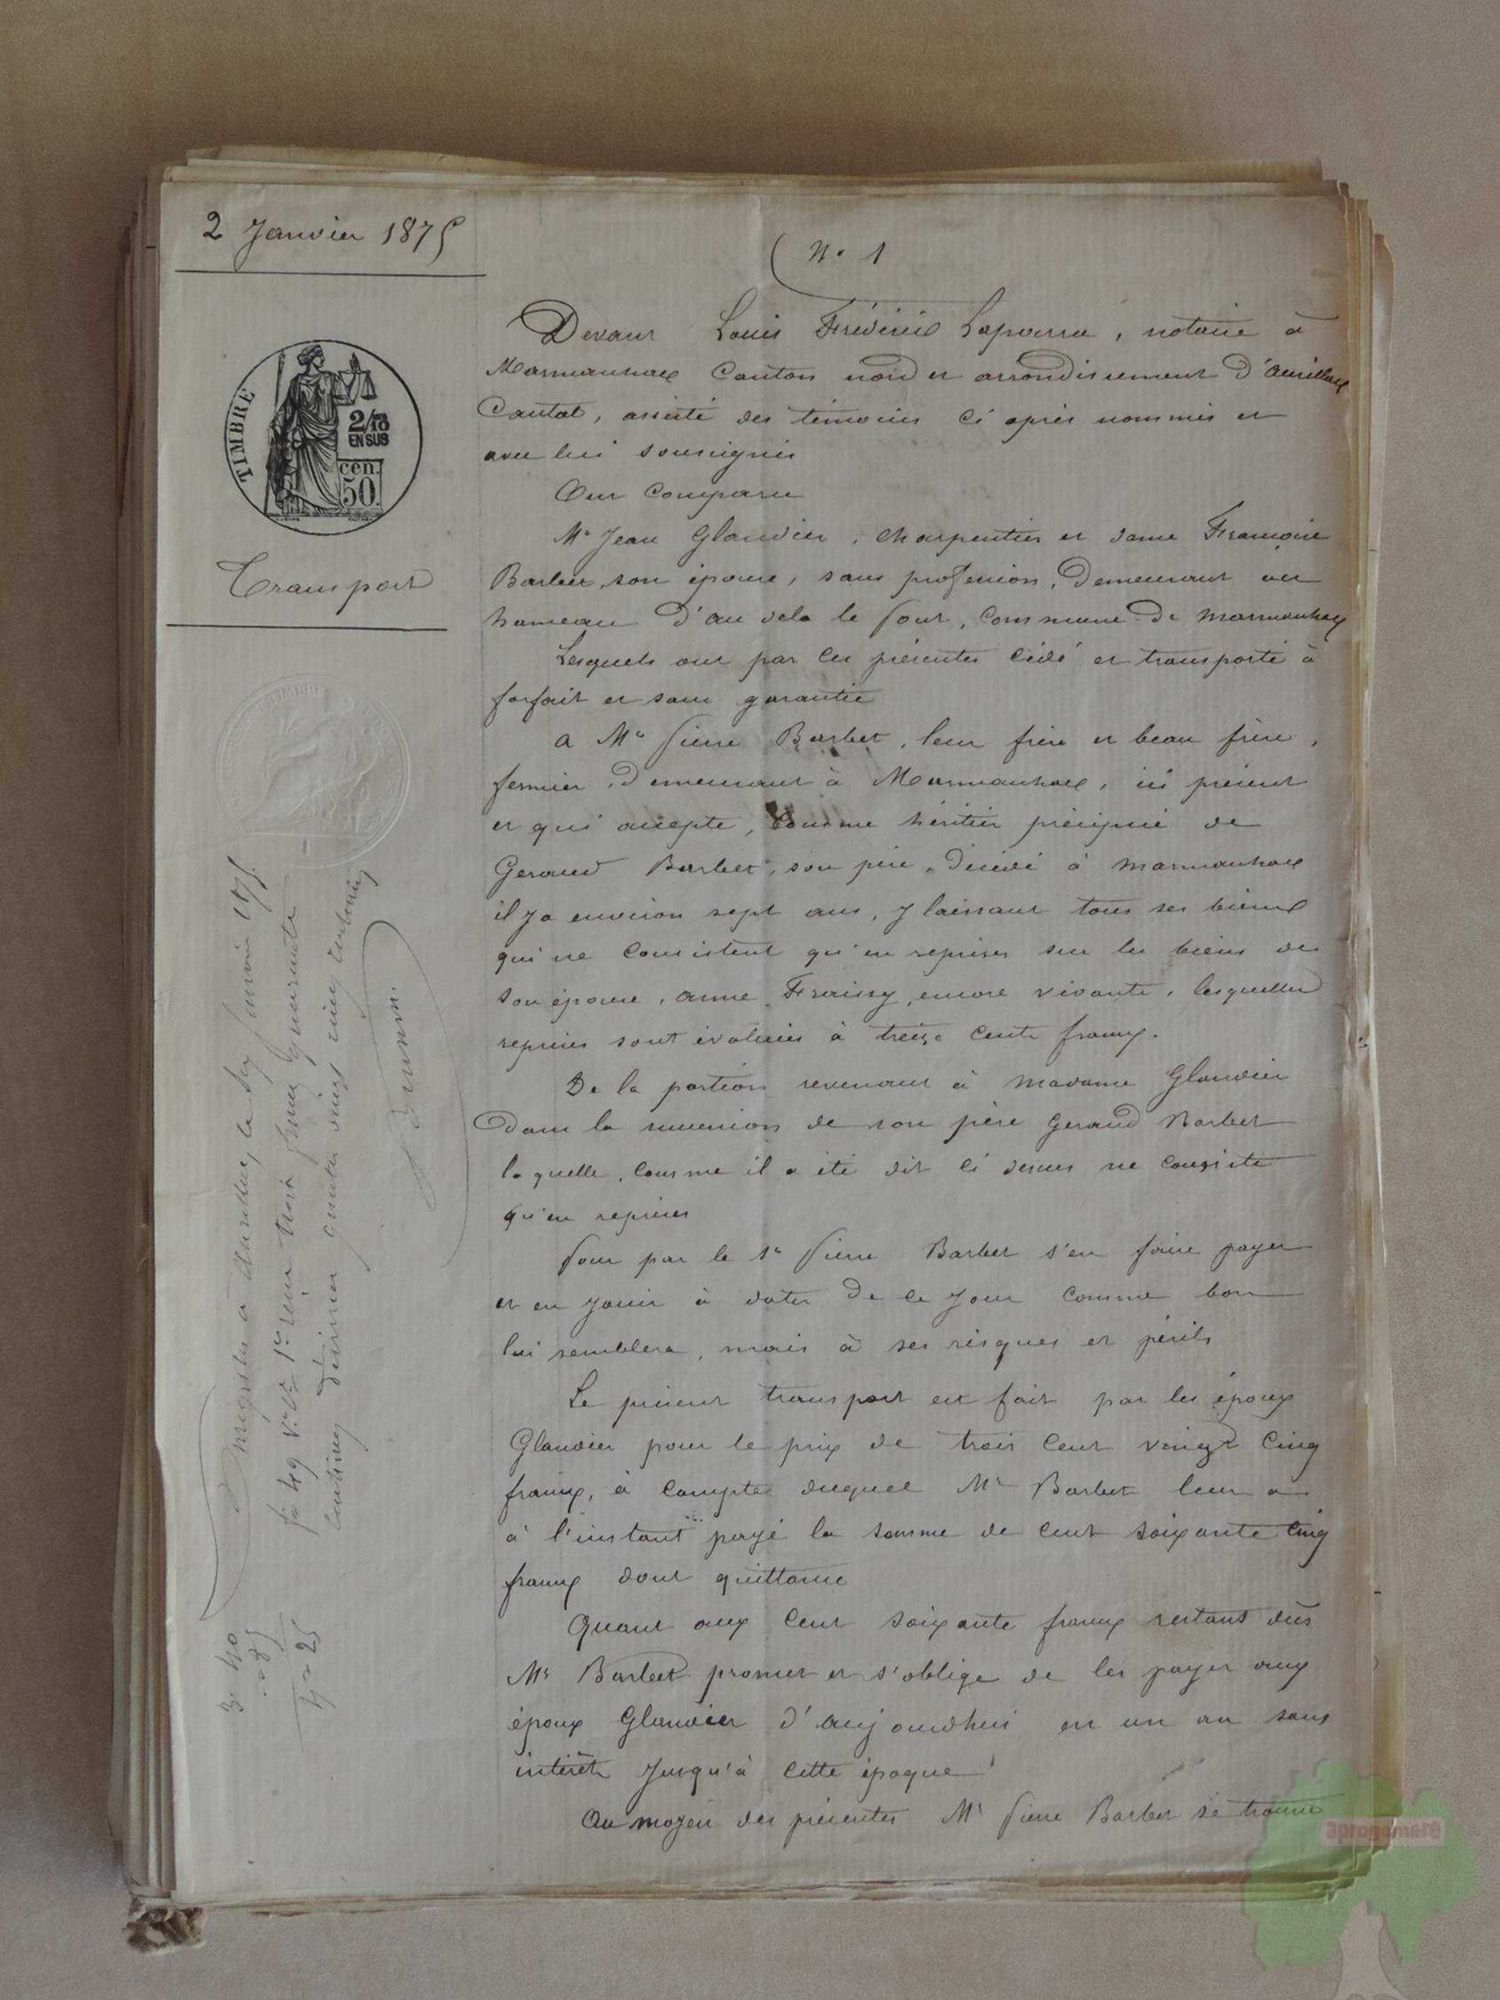 2 Janvier 1875
N° 1
TIMBRE
2/10
EN SUS
cen.
50.
Transport
Devant Louis Frédéric Laparra, notaire à
Marmanhac Canton nord et arrondissement d'aurillac
Cantal, assisté des témoins ci après nommés et
avec lui soussignés
Ont Comparu
Mr Jean Glandier, charpentier et dame Françoise
Barbet son épouse, sans profession, demeurant au
hameau d'au dela le Pont, commune de Marmanhac
Lesquels ont par ces présentes cédé et transporté à
forfait et sans garantie
a Mr Pierre Barbet, leur frère et beau frère,
fermier, demeurant à Marmanhac, ici présent
et qui accepte, comme héritier préciputé de
Geraud Barbet, son père, décédé à Marmanhac
il y a environ sept ans, y laissant tous ses biens
qui ne consistent qu'en reprises sur les biens de
son épouse, anne Fraissy, encore vivante, lesquelles
reprises sont évaluées à treize cents francs.
De la portion revenant à Madame Glandier
dans la succession de son père Geraud Barbet
laquelle, comme il a été dit ci dessus ne consiste
qu'en reprises
Pour par le Sr Pierre Barbet s'en faire payer
et en jouir à dater de ce jour comme bon
lui semblera, mais à ses risques et périls
Le présent transport est fait par les époux
Glandier pour le prix de trois cent vingt cinq
francs, à compte duquel Mr Barbet leur a
à l'instant payé la somme de cent soixante cinq
francs dont quittance
Quant aux cent soixante francs restant dûs
Mr Barbet promet et s'oblige de les payer aux
époux Glandier d'aujourdhui en un an sans
intérêt jusqu'à cette époque
Au moyen des présentes Mr Pierre Barbet se trouve
Enregistré à le six Janvier 1875.
fo 49 Vo Co 1re reçu trois francs quarante
centimes décimes quatre vingt cinq centimes
3. 40
.. 85
4 .. 25
aprogemere